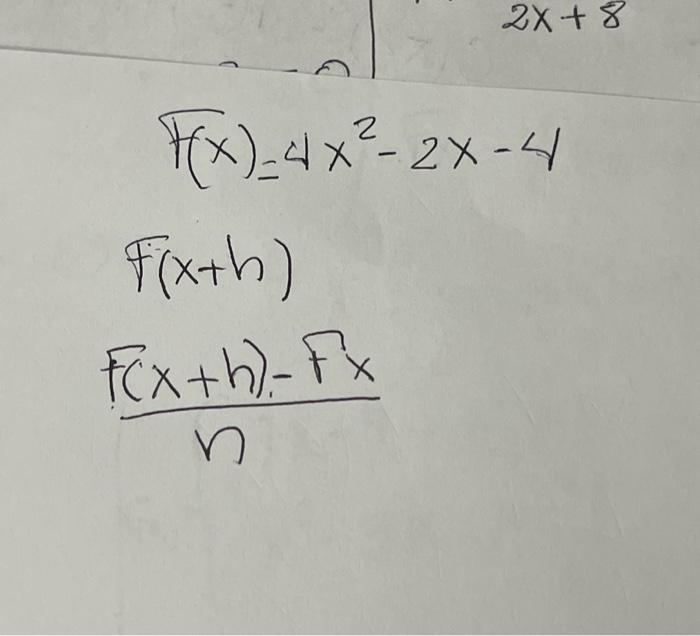 2x + 8
F(x) = 4x² - 2x - 4
F(x+h)
F(x+h) - Fx
n